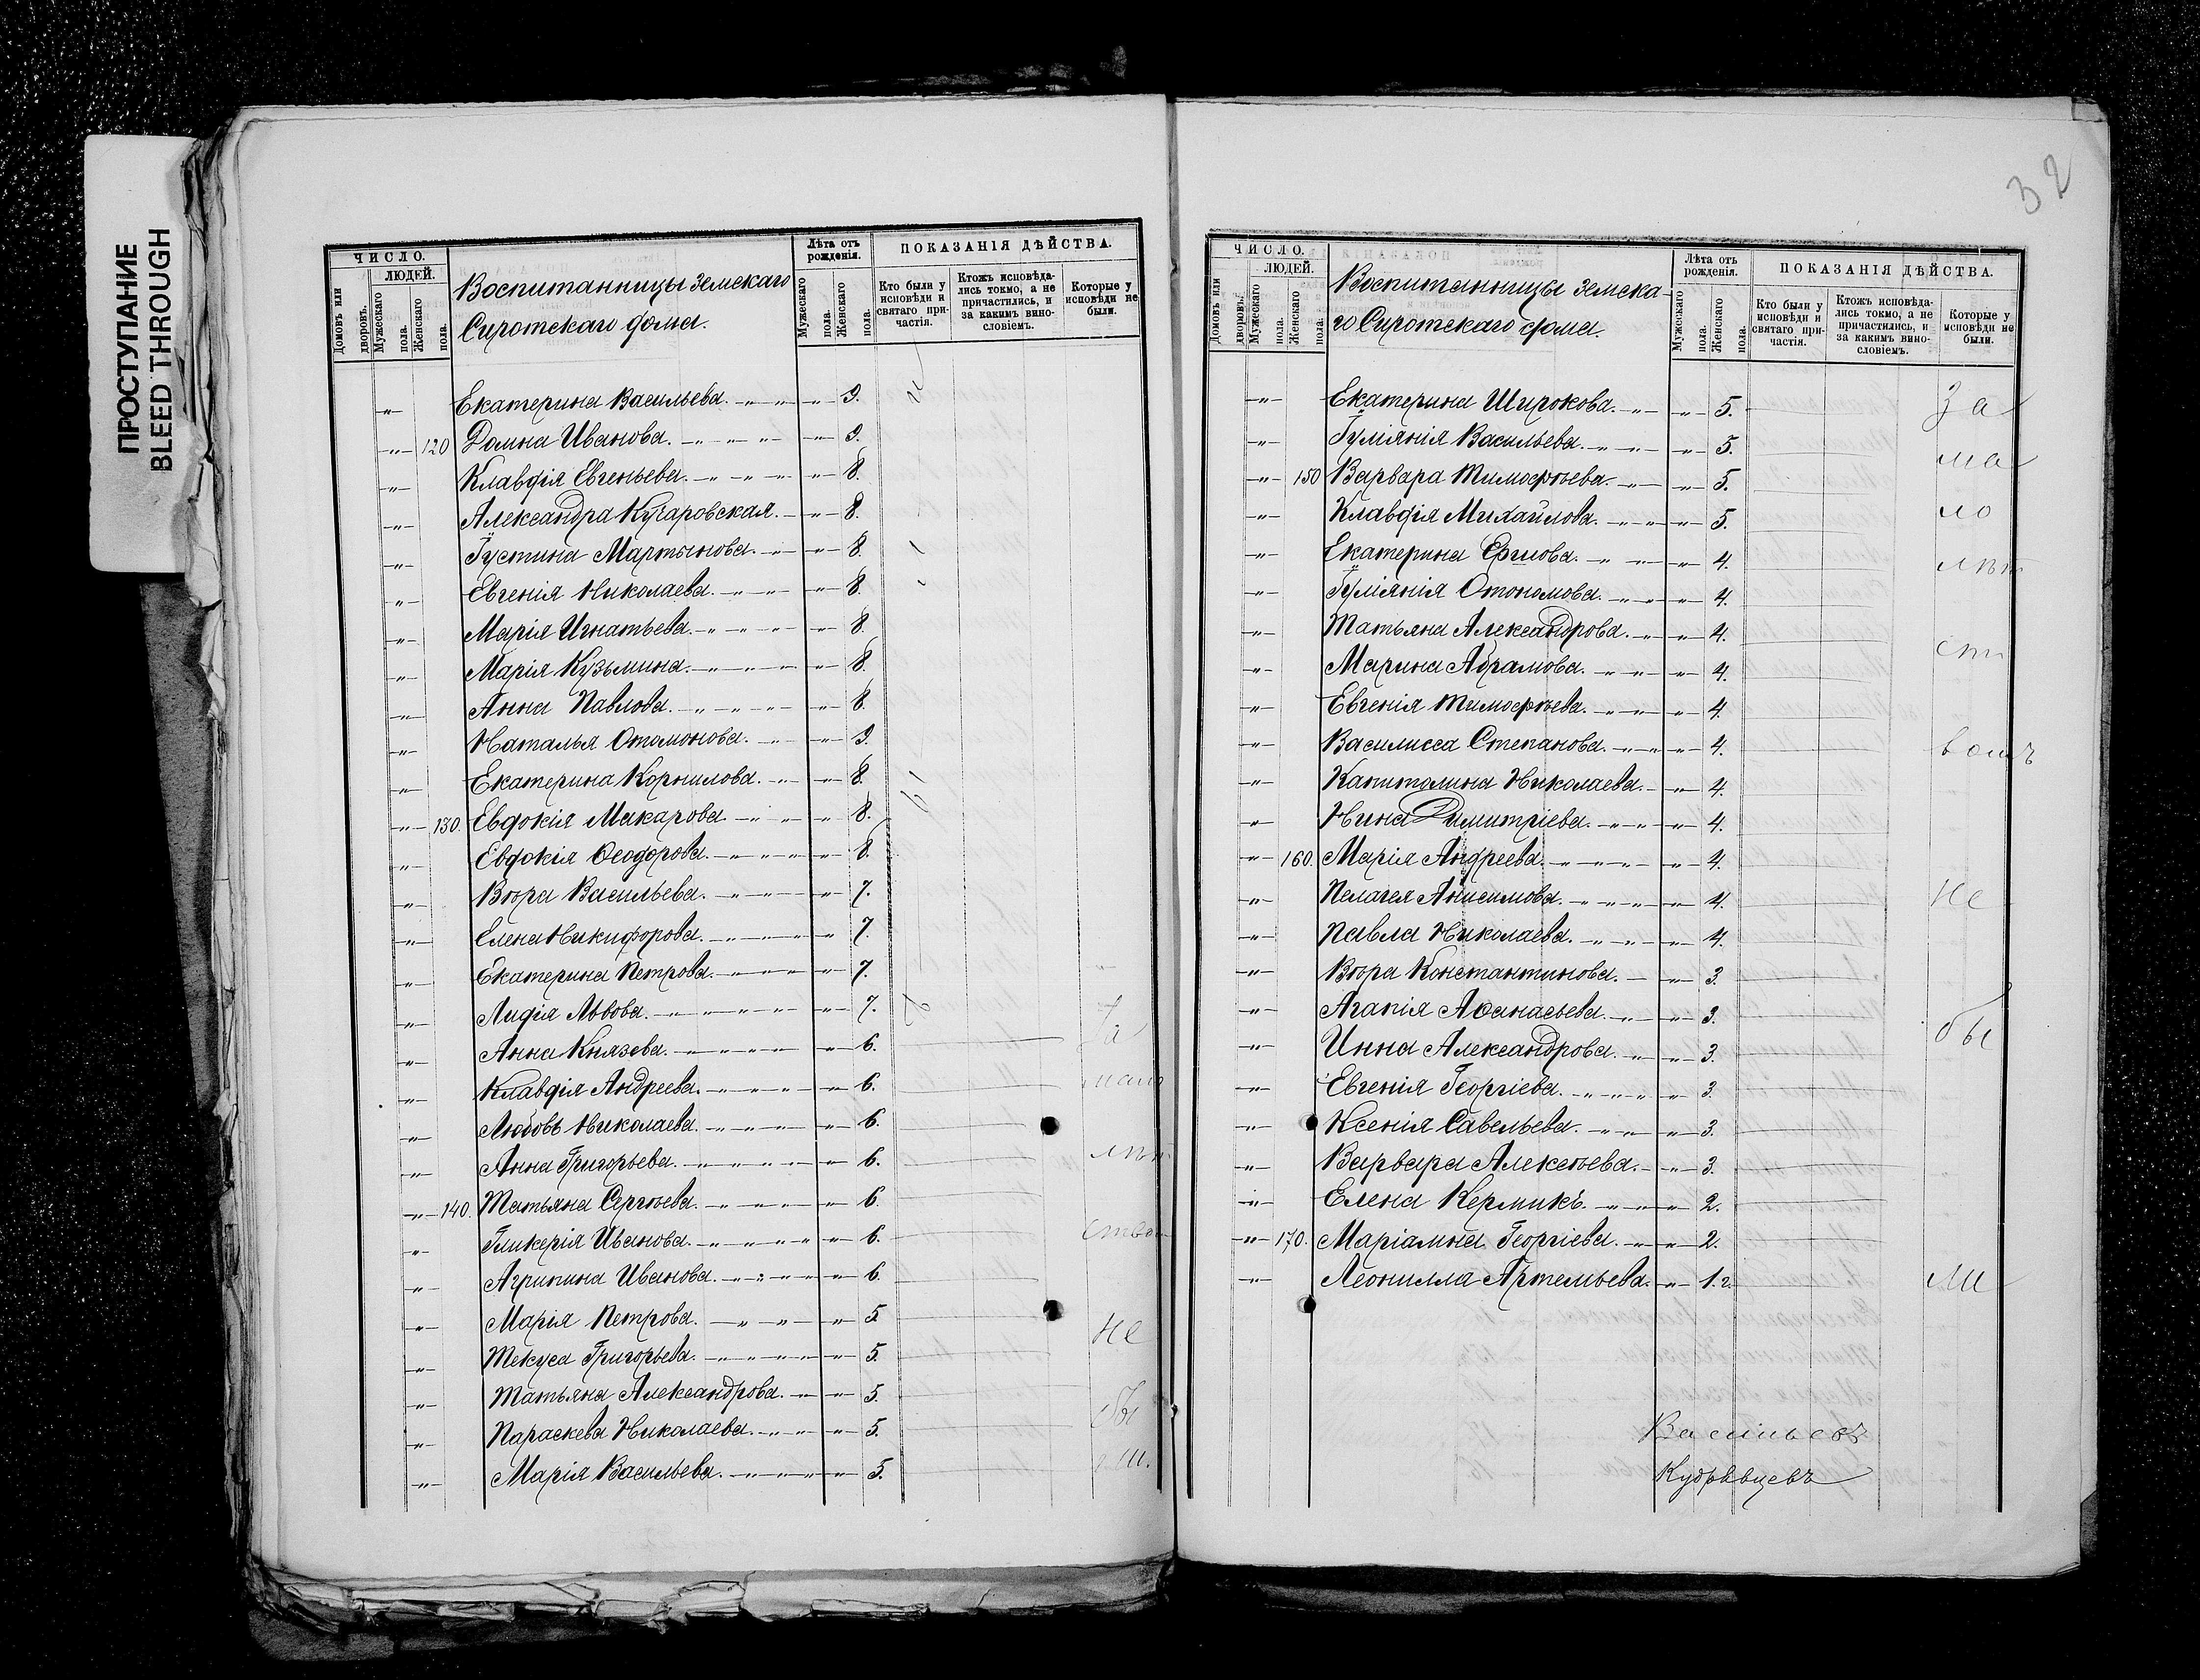 ПРОСТУПАНИЕ
BLEED THROUGH
32
ЧИСЛО.
ЛЮДЕЙ.
Домовъ или дворовъ.
Мужескаго пола.
Женскаго пола.
Воспитанницы Земскаго
Сиротскаго дома.
Лѣта отъ рожденія.
Мужескаго пола.
Женскаго пола.
ПОКАЗАНІЯ ДѢЙСТВА.
Кто были у исповѣди и святаго причастія.
Ктожъ исповѣдались токмо, а не причастились, и за какимъ винословіемъ.
Которые у исповѣди не были.
-„- Екатерина Васильева. -„- 9.
-„- 120 Домна Иванова. -„- 9.
-„- Клавдія Евгеньева. -„- 8.
-„- Александра Кучаровская. -„- 8.
-„- Іустина Мартынова. -„- 8.
-„- Евгенія Николаева. -„- 8.
-„- Марія Игнатьева. -„- 8.
-„- Марія Кузьмина. -„- 8.
-„- Анна Павлова. -„- 8.
-„- Наталья Отомонова. -„- 9.
-„- Екатерина Корнилова. -„- 8.
-„- 130. Евдокія Макарова. -„- 8.
-„- Евдокія Ѳеодорова. -„- 8.
-„- Вѣра Васильева. -„- 7.
-„- Елена Никифорова. -„- 7.
-„- Екатерина Петрова. -„- 7.
-„- Лидія Львова. -„- 7.
-„- Анна Князева. -„- 6. за
-„- Клавдія Андреева. -„- 6. мало
-„- Любовь Николаева. -„- 6.
-„- Анна Григорьева. -„- 6. лѣт
-„- 140. Татьяна Сергѣева. -„- 6.
-„- Гликерія Иванова. -„- 6. ство
-„- Агрипина Иванова. -„- 6.
-„- Марія Петрова. -„- 5. не
-„- Текуса Григорьева. -„- 5.
-„- Татьяна Александрова. -„- 5.
-„- Параскева Николаева. -„- 5. бы
-„- Марія Васильева. -„- 5. ли.
ЧИСЛО.
ЛЮДЕЙ.
Домовъ или дворовъ.
Мужескаго пола.
Женскаго пола.
Воспитанницы Земска-
го Сиротскаго дома.
Лѣта отъ рожденія.
Мужескаго пола.
Женскаго пола.
ПОКАЗАНІЯ ДѢЙСТВА.
Кто были у исповѣди и святаго причастія.
Ктожъ исповѣдались токмо, а не причастились, и за какимъ винословіемъ.
Которые у исповѣди не были.
-„- Екатерина Широкова. -„- 5. За
-„- Іуліянія Васильева. -„- 5. ма
-„- 150 Варвара Тимофѣева. -„- 5.
-„- Клавдія Михайлова. -„- 5. ло
-„- Екатерина -„- 4. лѣт
-„- Іуліянія Отономова. -„- 4.
-„- Татьяна Александрова. -„- 4. ст
-„- Марина Абрамова. -„- 4.
-„- Евгенія Тимофѣева. -„- 4.
-„- Василисса Степанова. -„- 4. вомъ
-„- Капитолина Николаева. -„- 4.
-„- Нина Димитріева. -„- 4.
-„- 160. Марія Андреева. -„- 4.
-„- Пелагея Анисимова. -„- 4. не
-„- Павла Николаева. -„- 4.
-„- Вѣра Константинова. -„- 3.
-„- Агапія Аѳанасьева. -„- 3.
-„- Инна Александрова. -„- 3. бы
-„- Евгенія Георгіева. -„- 3.
-„- Ксенія Савельева. -„- 3.
-„- Варвара Алексѣева. -„- 3.
-„- Елена Кермикъ. -„- 2.
-„- 170. Маріамна Георгіева. -„- 2.
-„- Леонилла Артемьева. -„- 1.г. ли
Васильевъ
Кудрявцевъ